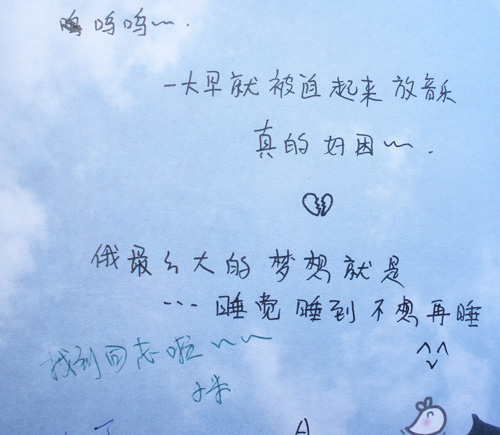 呜呜呜~.
一大早就被迫起来放音乐
真的好困~.
俄最大的梦想就是
...睡觉睡到不想再睡
找到同志啦~~